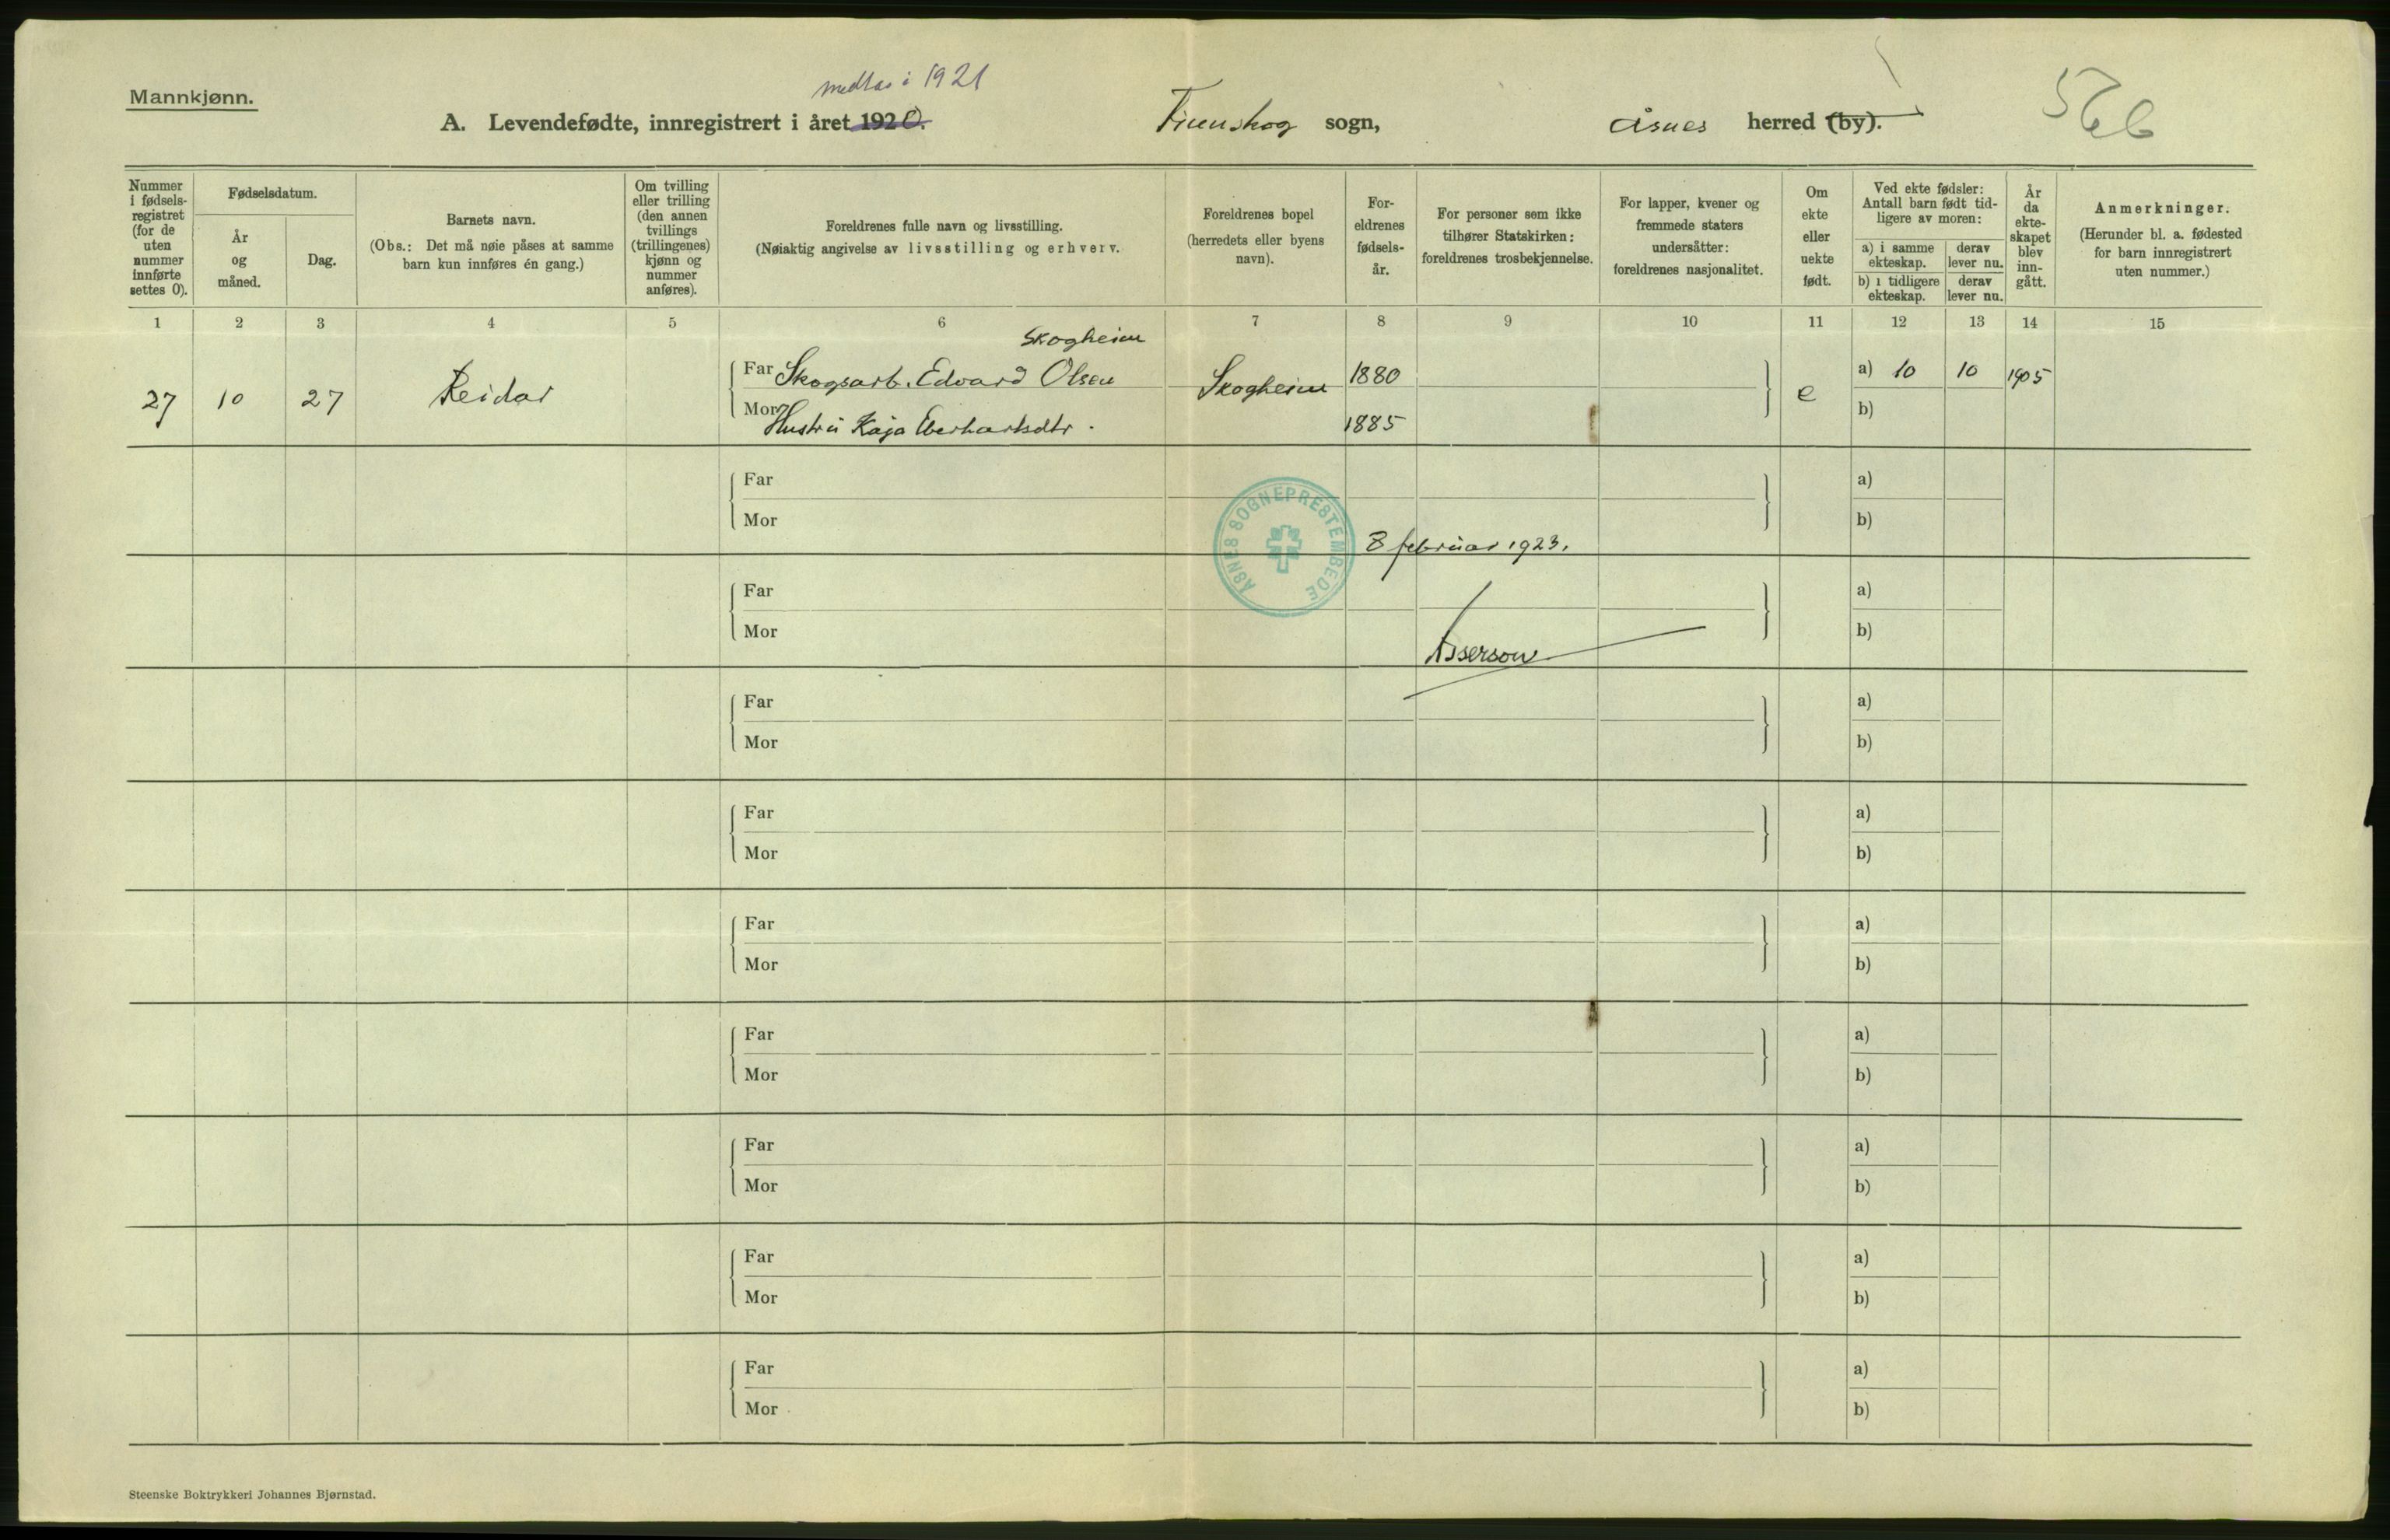 Mannkjønn.
medtas i 1921
A. Levendefødte, innregistrert i året 1920.
Finnskog sogn,
Åsnes herred (by).
Nummer i fødsels-registret (for de uten nummer innførte settes 0).
Fødselsdatum.
År og måned.
Dag.
Barnets navn.
(Obs.: Det må nøie påses at samme barn kun innføres én gang.)
Om tvilling eller trilling (den annen tvillings (trillingenes) kjønn og nummer anføres).
Foreldrenes fulle navn og livsstilling.
(Nøiaktig angivelse av livsstilling og erhverv.
Foreldrenes bopel (herredets eller byens navn).
For-eldrenes fødsels-år.
For personer som ikke tilhører Statskirken: foreldrenes trosbekjennelse.
For lapper, kvener og fremmede staters undersåtter: foreldrenes nasjonalitet.
Om ekte eller uekte født.
Ved ekte fødsler: Antall barn født tid-ligere av moren:
a) i samme ekteskap.
derav lever nu.
b) i tidligere ekteskap.
derav lever nu.
År da ekte-skapet blev inn-gått.
Anmerkninger.
(Herunder bl. a. fødested for barn innregistrert uten nummer.)
1 2 3 4 5 6 7 8 9 10 11 12 13 14 15
Skogheim
27 10 27 Reidar
Far Skogsarb. Edvard Olsen
Skogheim 1880
e a) 10 10 1905
Mor Hustru Kaja Eberhartsdtr.
1885
b)
Far a)
Mor b)
ÅSNES SOGNEPRESTEMBEDE
8 februar 1923.
Far a)
Mor b)
Asserson
Far a)
Mor b)
Far a)
Mor b)
Far a)
Mor b)
Far a)
Mor b)
Far a)
Mor b)
Far a)
Mor b)
Far a)
Mor b)
Steenske Boktrykkeri Johannes Bjørnstad.